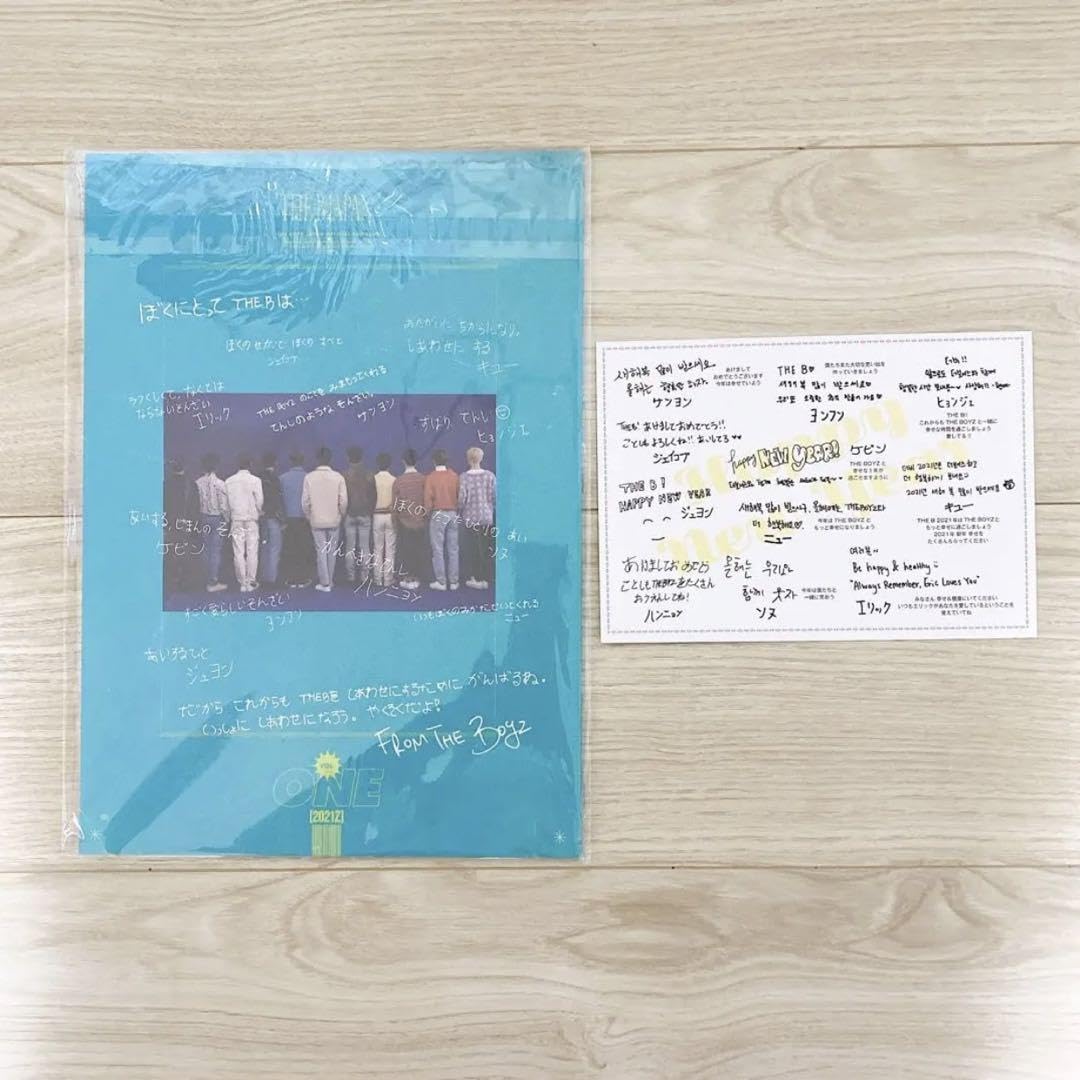 THE B JAPAN
ぼくにとって THE Bは…
ぼくの せかいで ぼくの すべて
ジェイコブ
おたがいの ちからになり、
しあわせに する
キュー
ラブくしくて、なくては
ならないそんざい
エリック
THE BOYZ のことを みまもってくれる
てんしのような そんざい。
サンヨン
ずばり、てんし
ヒョンジェ
あいする、じまんの そんざい
ケビン
ぼくの たったひとりの あい
ソヌ
かんぺきなてんし
ハンニョン
すごく愛らしいそんざい
ヨンフン
いつもぼくのみかたでいてくれる
ニュー
あいするひと
ジュヨン
だから これからも THEBを しあわせにするために がんばるね。
いっしょに しあわせになろう。やくそくだよ!
FROM THE BOYZ
VOL
ONE
[2021Z]
새해복 많이 받으세요.
올해는 행복만 하자.
サンヨン
あけまして
おめでとうございます
今年は幸せでいよう
THE B♡
새해 복 많이 받으세요♡
ヨンフン
僕たちまた大切な思い出を
作っていきましょう
더비!!
ヒョンジェ
THE B!
これからも THE BOYZ と一緒に
幸せな時間を過ごしましょう
愛してる♡
THE B! あけましておめでとう!!
ことしもよろしくね!! あいしてる♥♥
ジェイコブ
happy NEW YEAR!
ケビン
THE BOYZ と
幸せな1年が
過ごせますように
THE B!
HAPPY NEW YEAR
ジュヨン
새해복 많이 받으시구, 올해에는 THEBOYZ와
더 행복해요♡
ニュー
今年は THE BOYZ と
もっと幸せになりましょう
더비 2021년은 더보이즈랑
더 행복하게 보내요
2021년 새해 복 많이 받으세요
キュー
THE B 2021 年は THE BOYZ と
もっと幸せに過ごしましょう
2021年 新年 幸せを
たくさんもらってください
あけましておめでとう
ことしもTHEBOYZをたくさん
おうえんしてね!
ハンニョン
올해는 우리와
함께 웃자
ソヌ
今年は僕たちと
一緒に笑おう
여러분~
Be happy & healthy
"Always Remember, Eric Loves You"
エリック
みなさん 幸せ&健康にいてください
いつもエリックがあなたを愛しているということを
覚えていてね
Happy
New Year